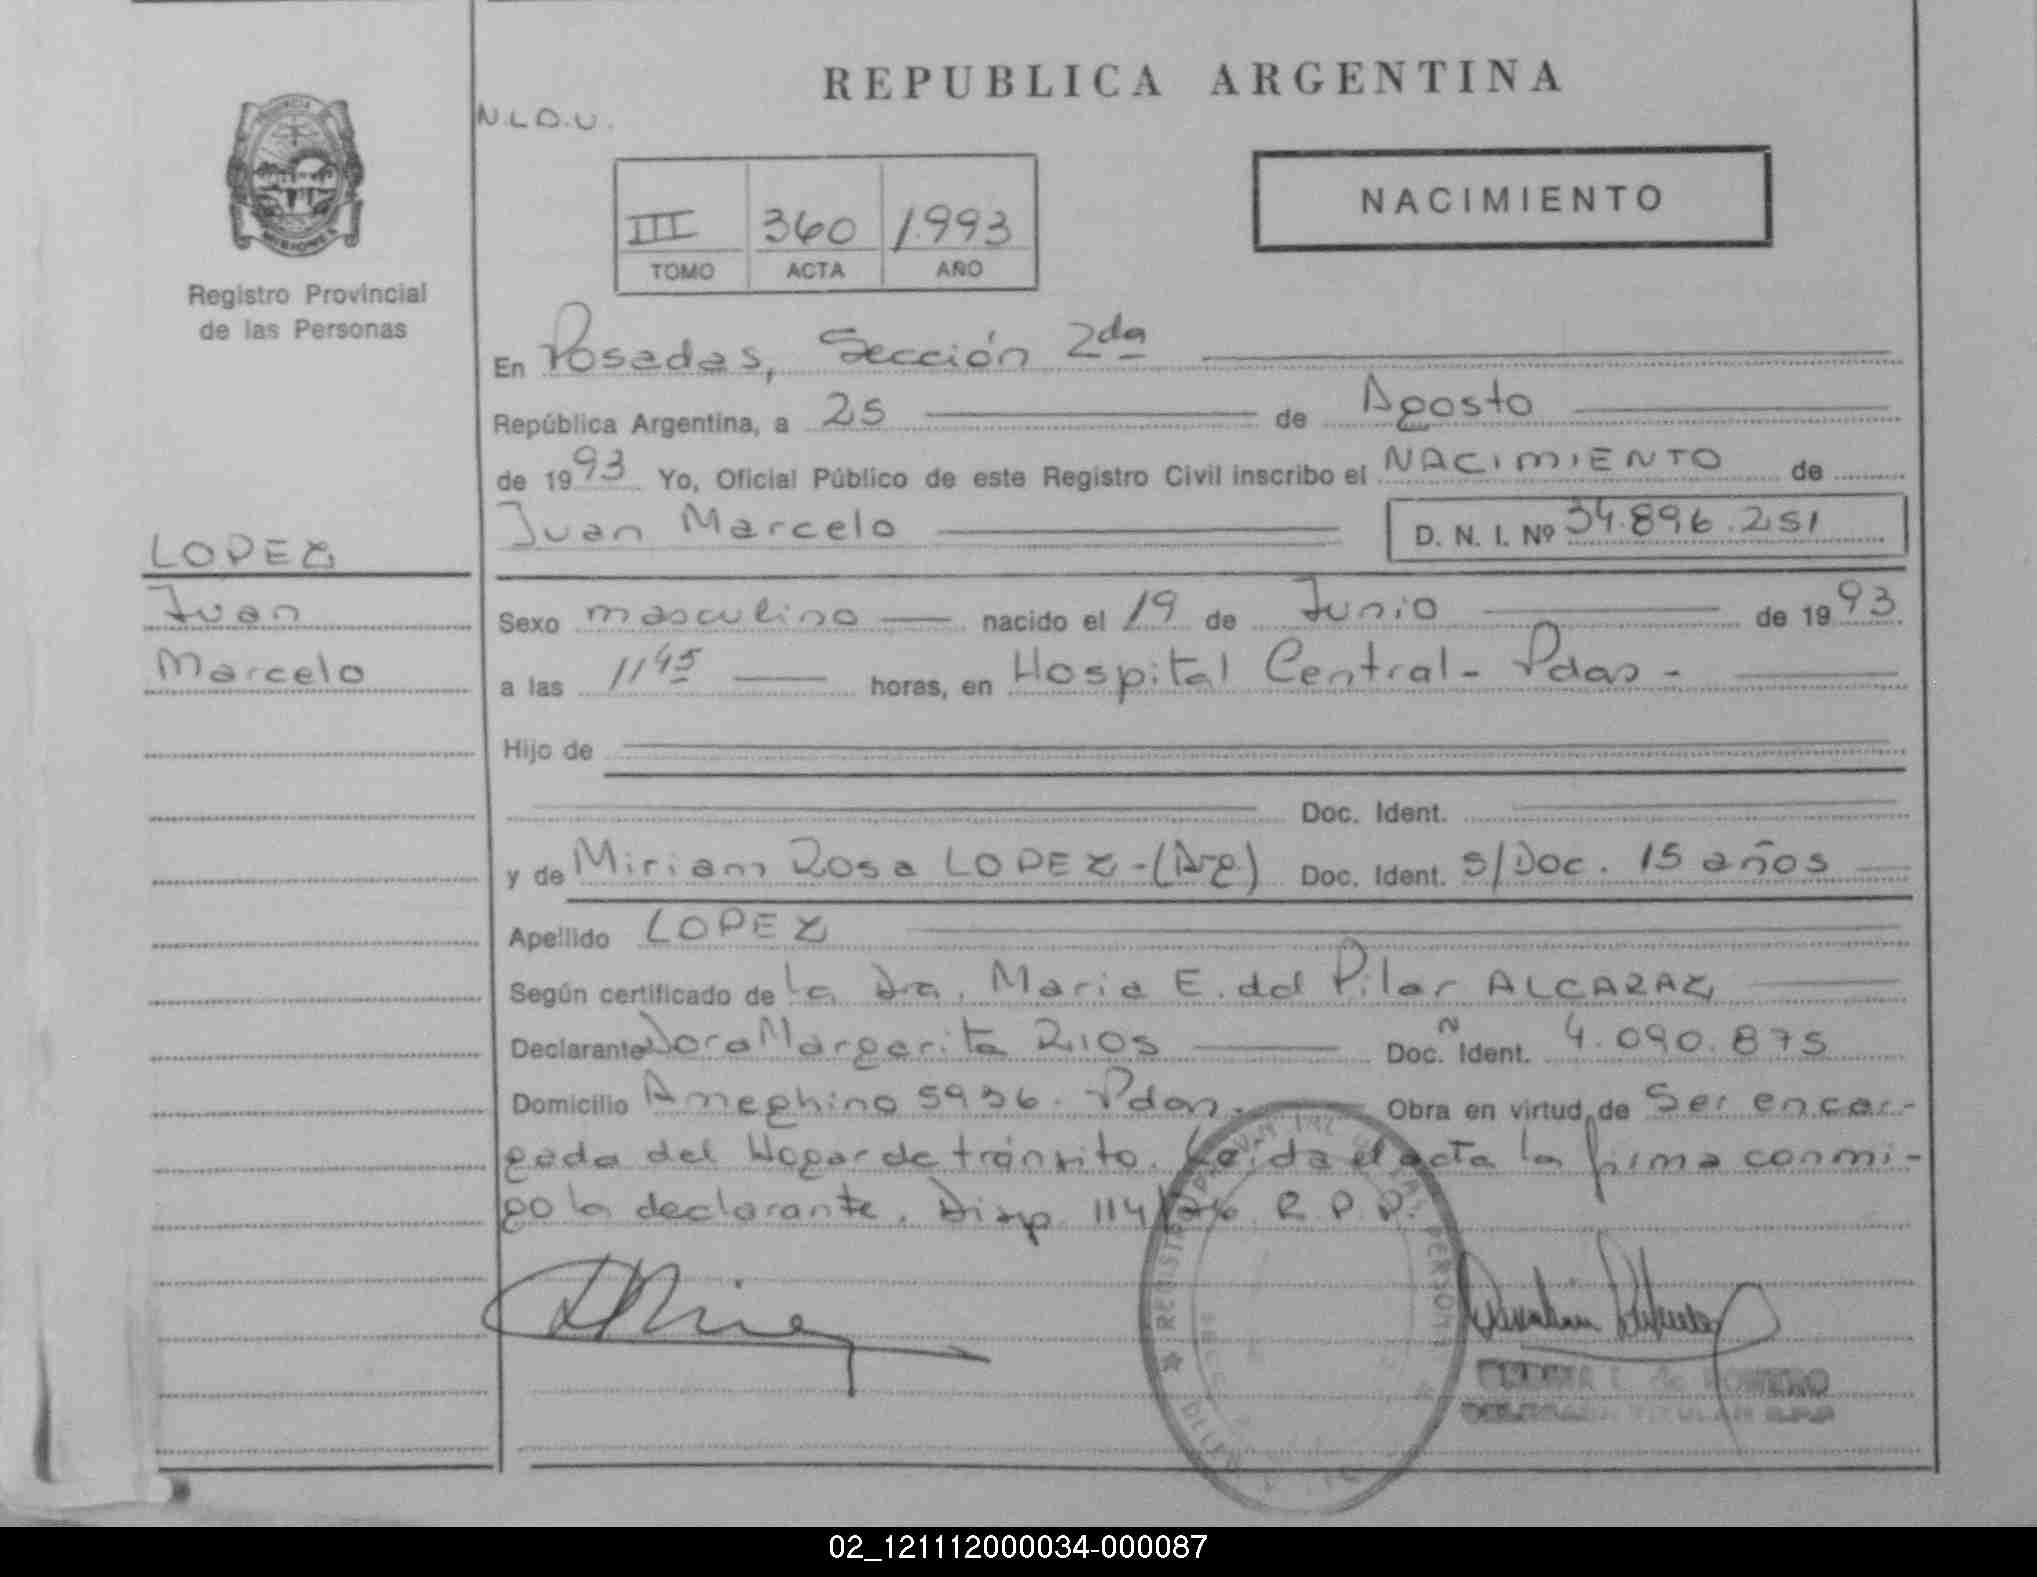 REPUBLICA ARGENTINA
N.L.D.U.
NACIMIENTO
III 360 1.993
TOMO ACTA AÑO
Registro Provincial
de las Personas
En Posadas, Sección 2da
República Argentina, a 25 de Agosto
de 1993 Yo, Oficial Público de este Registro Civil inscribo el NACIMIENTO de
Juan Marcelo D. N. I. Nº 34.896.251
LOPEZ
Juan
Marcelo
Sexo masculino nacido el 19 de Junio de 1993
a las 11 45 horas, en Hospital Central - Pdas -
Hijo de
Doc. Ident.
y de Miriam Rosa LOPEZ - (Arg) Doc. Ident. S/Doc. 15 años
Apellido LOPEZ
Según certificado de la Dra. Maria E. del Pilar ALCARAZ
Declarante Dora Margarita RIOS Doc. Ident. Nº 4.090.875
Domicilio Ameghino 5936. Pdas. Obra en virtud de Ser encar-
gada del Hogar de tránsito. Leida el acta la firma conmi-
go la declarante. Disp. 114/ R.P.P.
REGISTRO PROVINCIAL DE LAS PERSONAS
DELEGADA TITULAR R.P.P
02_121112000034-000087